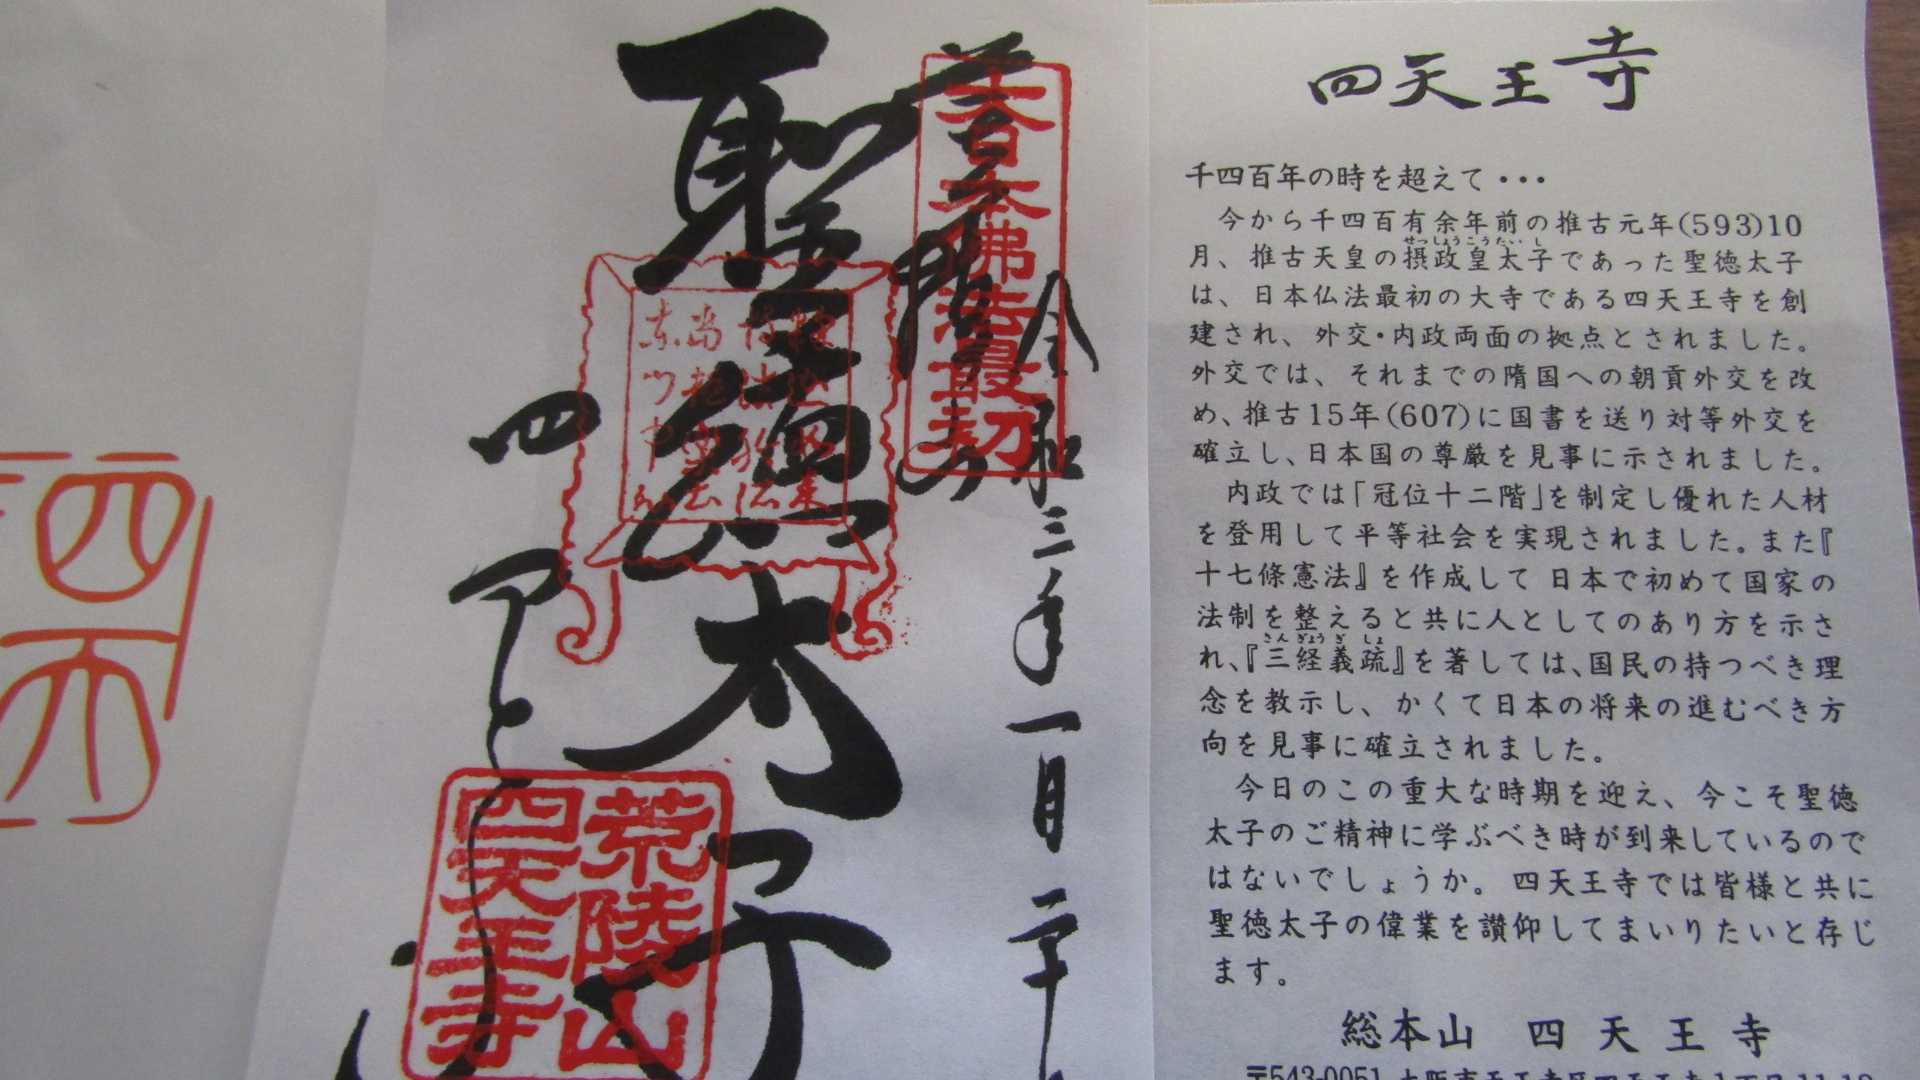 四天
聖徳太子
令和三年一月二十
四天王寺
大日本佛法最初
荒陵山
四天王寺
四天王寺
千四百年の時を超えて・・・
今から千四百有余年前の推古元年(593)10
月、推古天皇の摂政皇太子であった聖徳太子
せっしょうこうたいし
は、日本仏法最初の大寺である四天王寺を創
建され、外交・内政両面の拠点とされました。
外交では、それまでの隋国への朝貢外交を改
め、推古15年(607)に国書を送り対等外交を
確立し、日本国の尊厳を見事に示されました。
内政では「冠位十二階」を制定し優れた人材
を登用して平等社会を実現されました。また『
十七條憲法』を作成して日本で初めて国家の
法制を整えると共に人としてのあり方を示さ
れ、『三経義疏』を著しては、国民の持つべき理
さんぎょうぎしょ
念を教示し、かくて日本の将来の進むべき方
向を見事に確立されました。
今日のこの重大な時期を迎え、今こそ聖徳
太子のご精神に学ぶべき時が到来しているので
はないでしょうか。四天王寺では皆様と共に
聖徳太子の偉業を讃仰してまいりたいと存じ
ます。
総本山 四天王寺
〒543-0051 大阪市天王寺区四天王寺1丁目11-18